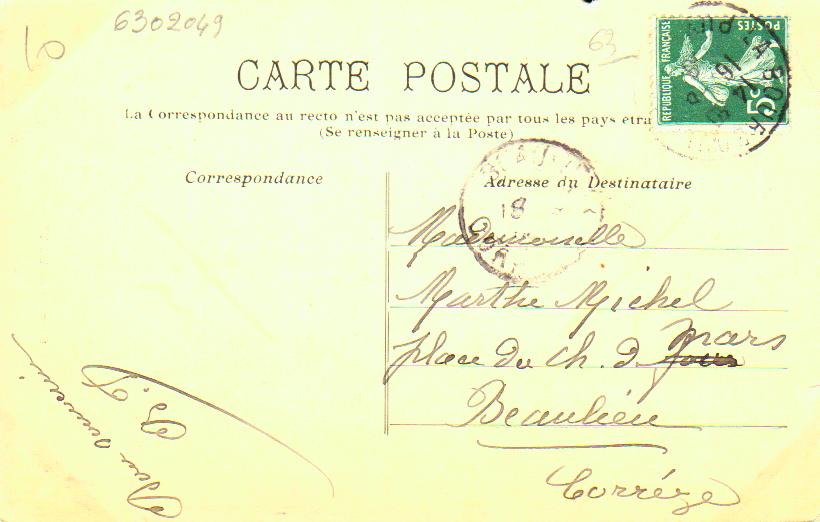 10
6302049
63
CARTE POSTALE
La Correspondance au recto n'est pas acceptée par tous les pays étra
(Se renseigner à la Poste)
REPUBLIQUE FRANÇAISE
POSTES
5c
Correspondance
Adresse du Destinataire
18
Mademoiselle
Marthe Michel
place du Ch. d. Mars
Beaulieu
Corrèze
Bon souvenir
B. F